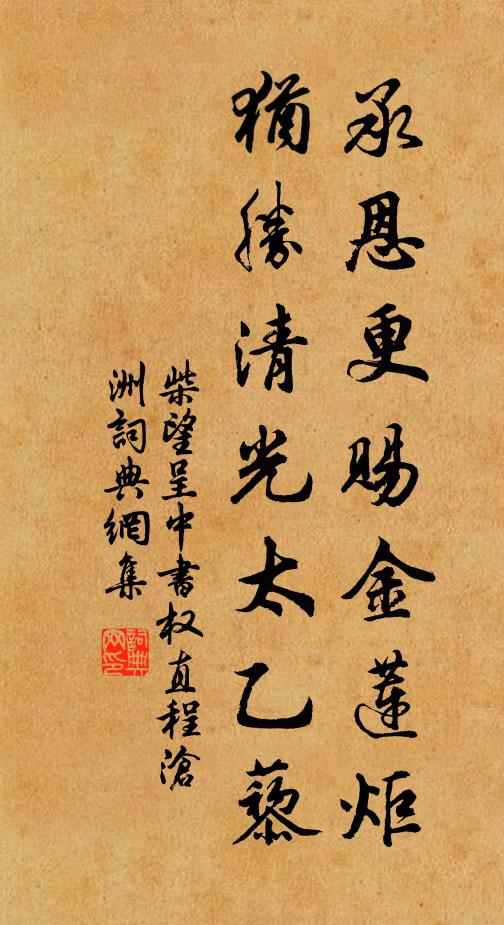 承恩更賜金蓮炬
猶勝清光太乙藜
柴望呈中書权直程滄
洲詞典網集
詞典网印